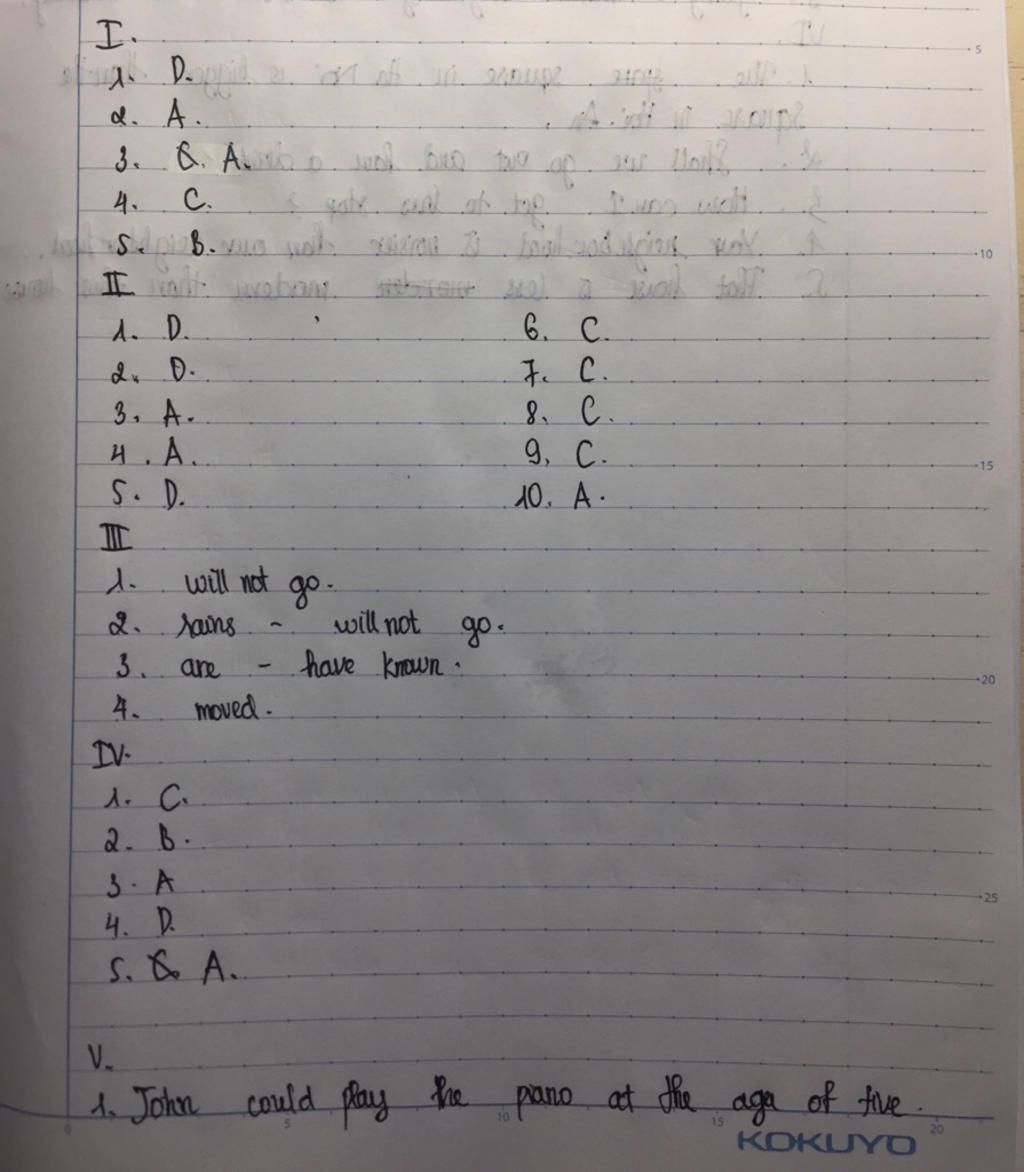 I.
1. D.
2. A.
3. A.
4. C.
5. B.
II
1. D. 6. C.
2. D. 7. C.
3. A. 8. C.
4. A. 9. C.
5. D. 10. A.
III
1. will not go.
2. rains - will not go.
3. are - have known.
4. moved.
IV.
1. C.
2. B.
3. A
4. D.
5. A.
V.
1. John could play the piano at the age of five.
KOKUYO
5
10
15
20
25
0 5 10 15 20